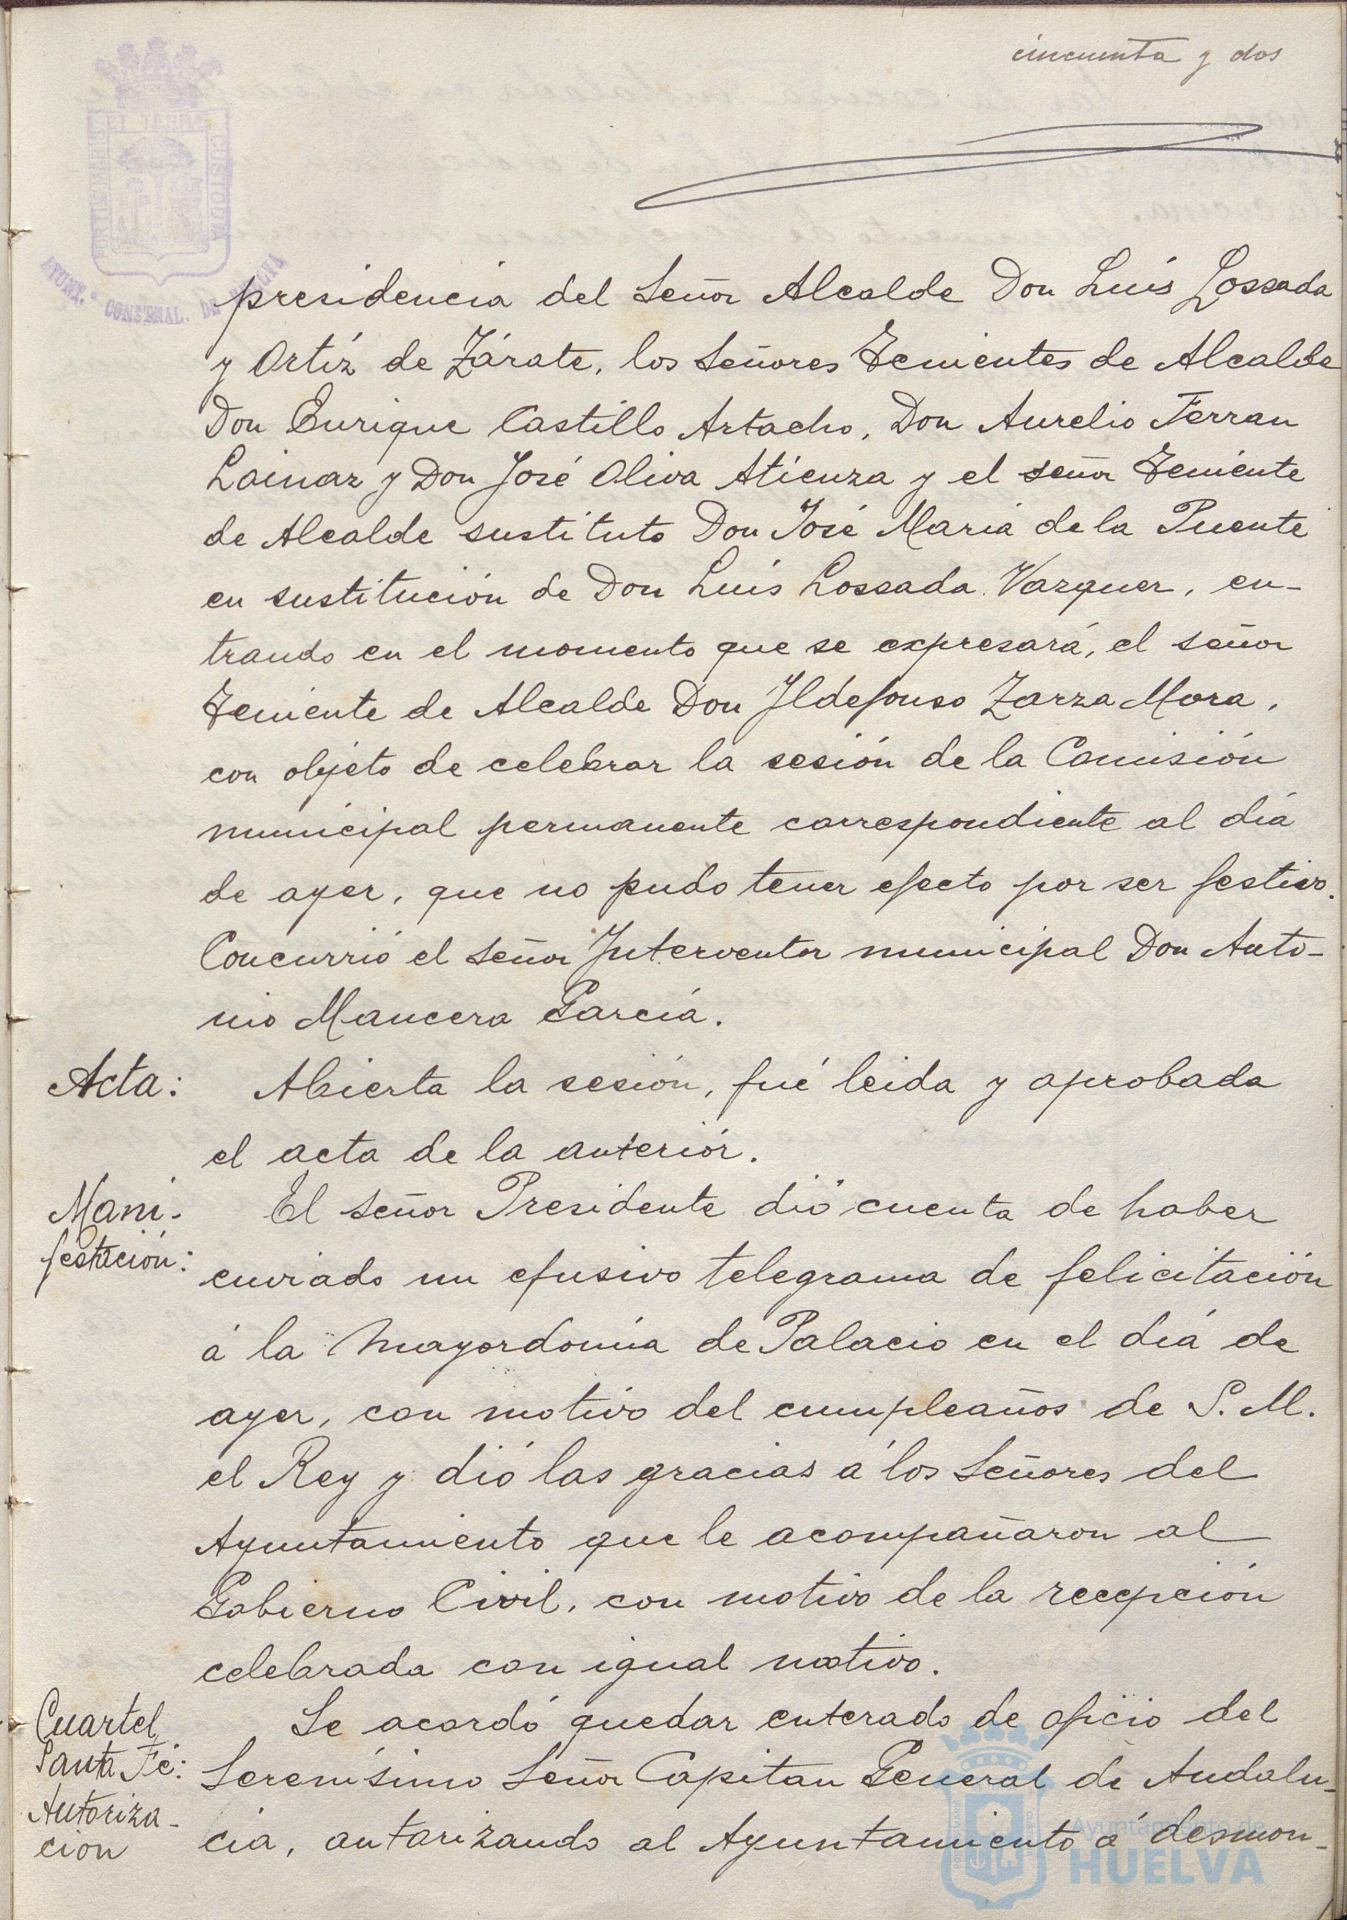 cincuenta y dos
PORTUS MARIS ET TERRAE CUSTODIA
AYUNT.º CONST.NAL. DE HUELVA
presidencia del Señor Alcalde Don Luís Lossada
y Ortíz de Zárate, los Señores Tenientes de Alcalde
Don Enrique Castillo Artacho, Don Aurelio Ferran
Lainaz y Don José Oliva Atienza y el señor Teniente
de Alcalde sustituto Don José María de la Puente
en sustitución de Don Luís Lossada Vazquez, en-
trando en el momento que se expresará, el señor
Teniente de Alcalde Don Ildefonso Zarza Mora,
con objeto de celebrar la sesión de la Comisión
municipal permanente correspondiente al día
de ayer, que no pudo tener efecto por ser festivo.
Concurrió el Señor Interventor municipal Don Anto-
nio Mancera García.
Acta: Abierta la sesión, fué leida y aprobada
el acta de la anteriór.
Mani-
festación:
El Señor Presidente dió cuenta de haber
enviado un efusivo telegrama de felicitación
á la Mayordomía de Palacio en el día de
ayer, con motivo del cumpleaños de S. M.
el Rey y dió las gracias á los Señores del
Ayuntamiento que le acompañaron al
Gobierno Civil, con motivo de la recepción
celebrada con igual motivo.
Cuartel
Santa Fé:
Autoriza-
cion
Se acordó quedar enterado de oficio del
Serenísimo Señor Capitan General de Andalu-
cía, autorizando al Ayuntamiento á desmon-
Ayuntamiento de
HUELVA